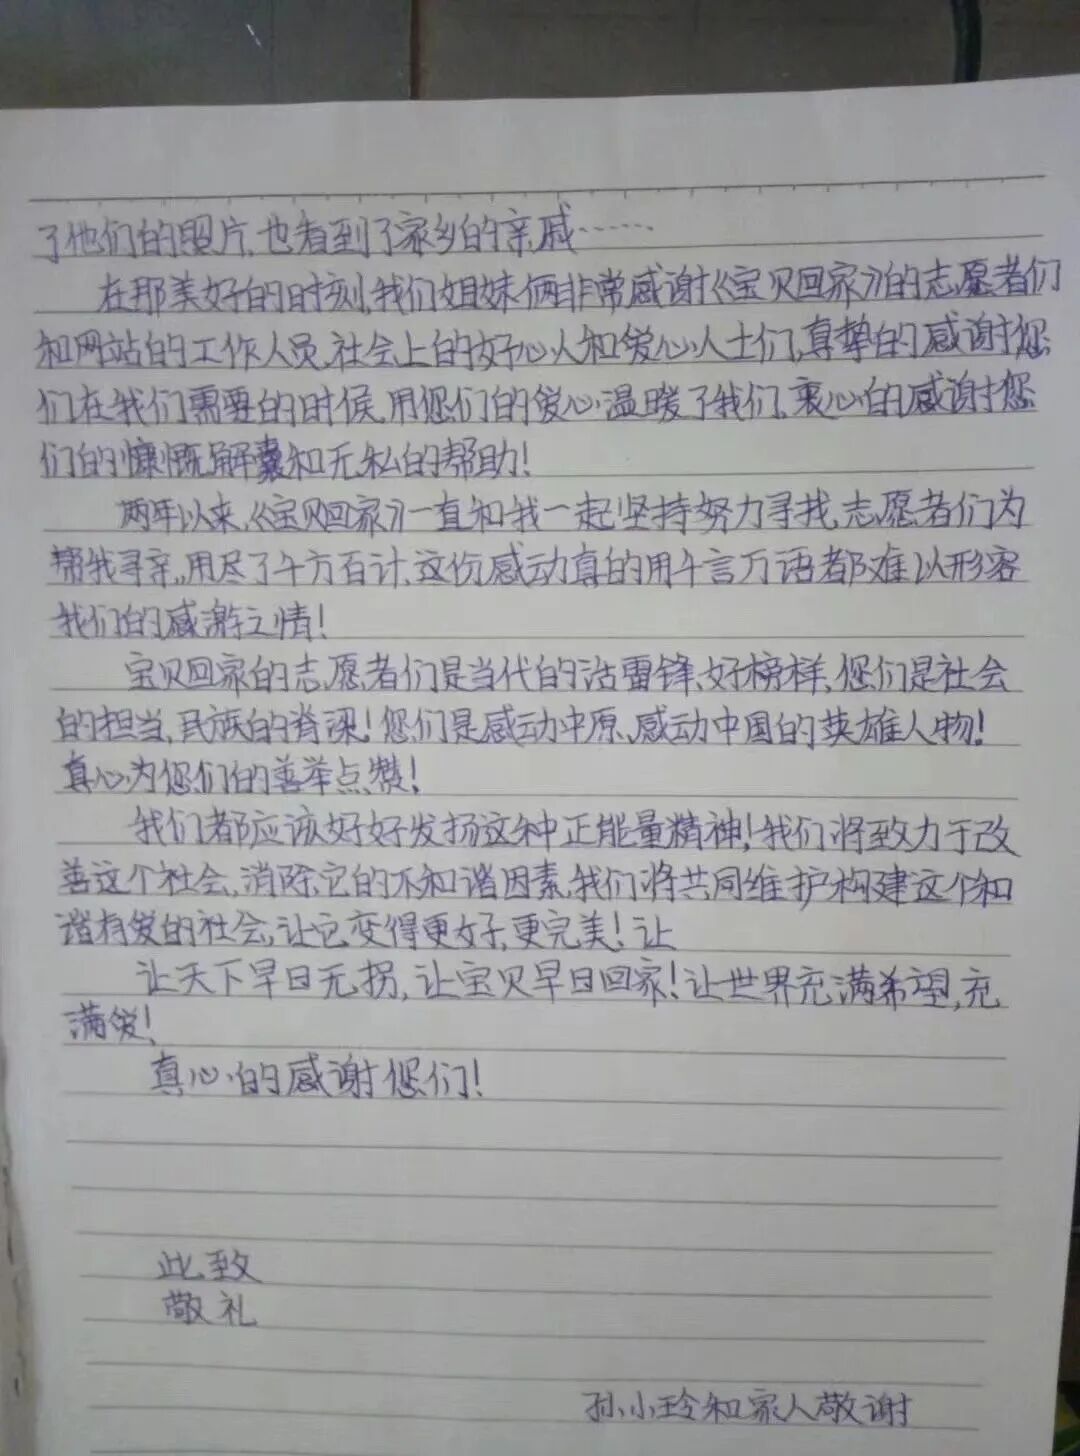 了他们的照片,也看到了家乡的亲戚……
在那美好的时刻,我们姐妹俩非常感谢《宝贝回家》的志愿者们
和网站的工作人员,社会上的好心人和爱心人士们,真挚的感谢您
们在我们需要的时候,用您们的爱心温暖了我们,衷心的感谢您
们的慷慨解囊和无私的帮助!
两年以来,《宝贝回家》一直和我一起坚持努力寻找,志愿者们为
帮我寻亲,用尽了千方百计,这份感动真的用千言万语都难以形容
我们的感谢之情!
宝贝回家的志愿者们是当代的活雷锋、好榜样,您们是社会
的担当,民族的脊梁!您们是感动中原、感动中国的英雄人物!
真心为您们的善举点赞!
我们都应该好好发扬这种正能量精神!我们将致力于改
善这个社会,消除它的不和谐因素,我们将共同维护构建这个和
谐有爱的社会,让它变得更好,更完美!让
让天下早日无拐,让宝贝早日回家!让世界充满希望,充
满爱!
真心的感谢您们!
此致
敬礼
孙小玲和家人敬谢